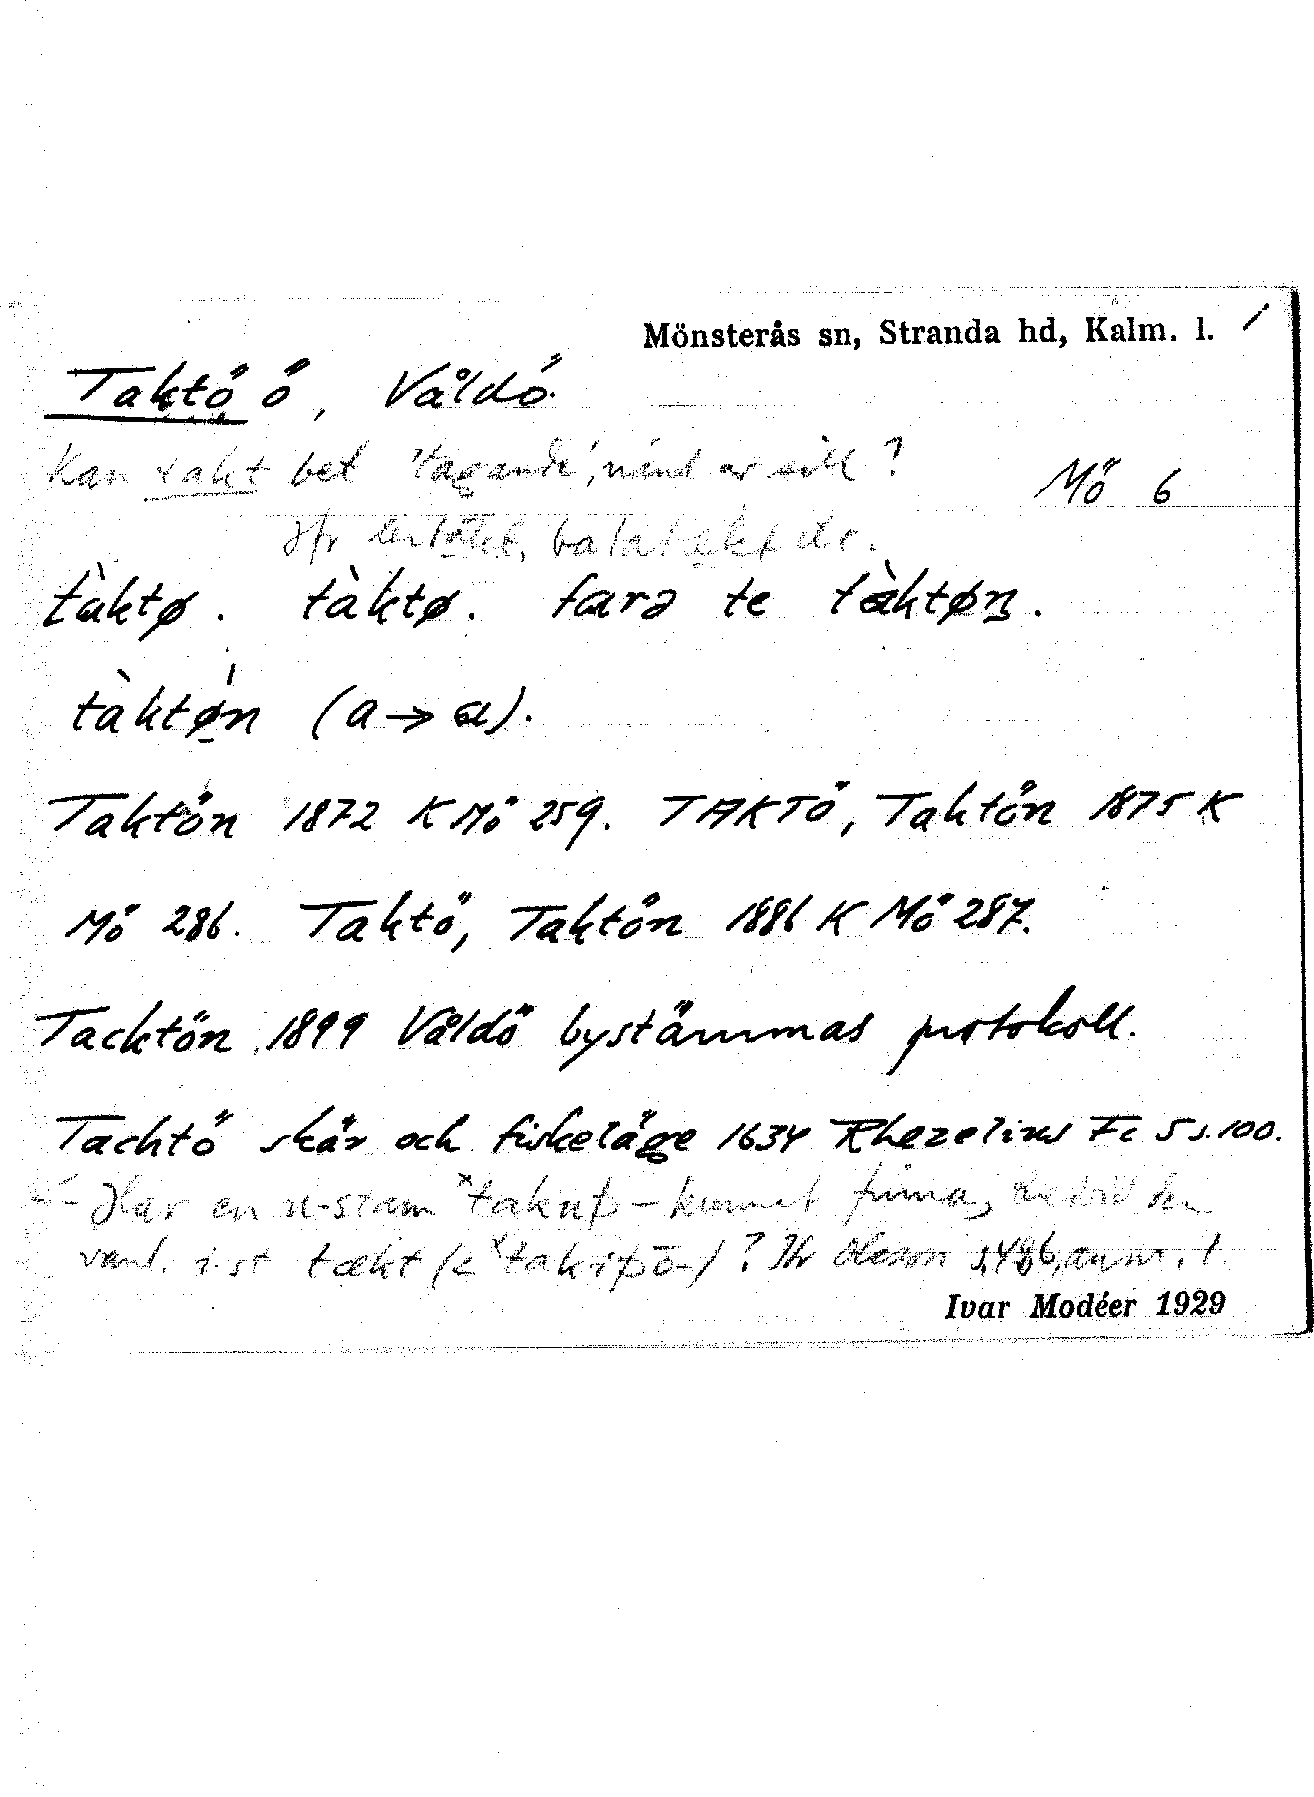 Mönsterås sn, Stranda hd, Kalm. l.
Taktö ö, Våldö.
Kan takt bet 'tagande', näml av sill?
Mö 6
Jfr lertäkt, batatækt etc.
tàktø. tàktø. farə te tàktøn.
tàktøn (a→ɑ).
Taktön 1872 K Mö 259. TAKTÖ, Taktön 1875 K
Mö 286. Taktö, Taktön 1886 K Mö 287.
Tacktön 1899 Våldö bystämmas protokoll.
Tachtö skär och fiskeläge 1634 Rhezelius Fc 5 s. 100.
– Har en u-stam *takuþ- kunnat finnas bredvid den
vanl. i-st tækt (< *takiþō-)? Jfr Olson s. 486, anm. 1
Ivar Modéer 1929